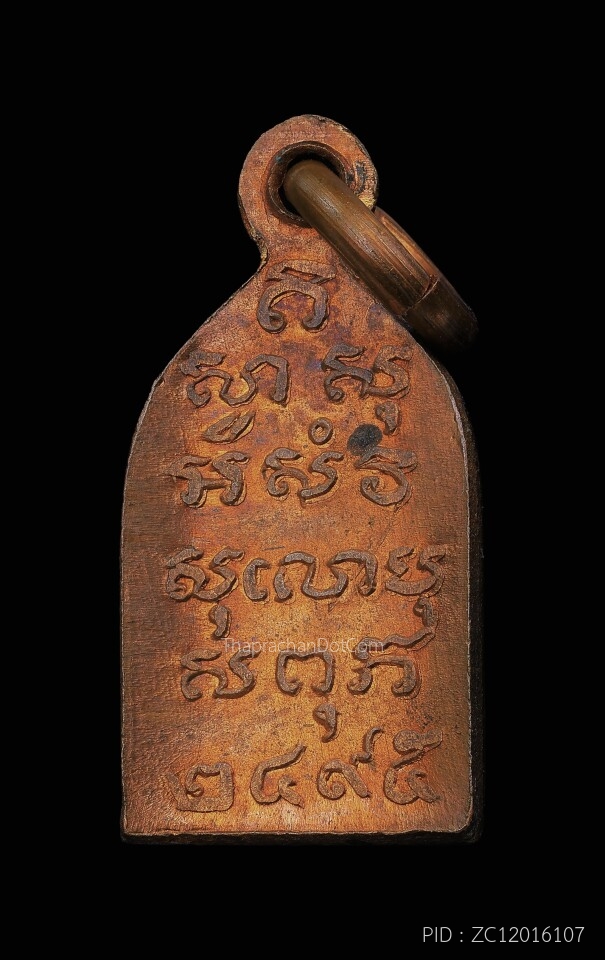 ឥ
ស្វា សុ
អ សំ វិ
សុ លោ បុ
ស ពុ ភ
๒๔๙๕
ThaprachanDotCom
PID : ZC12016107